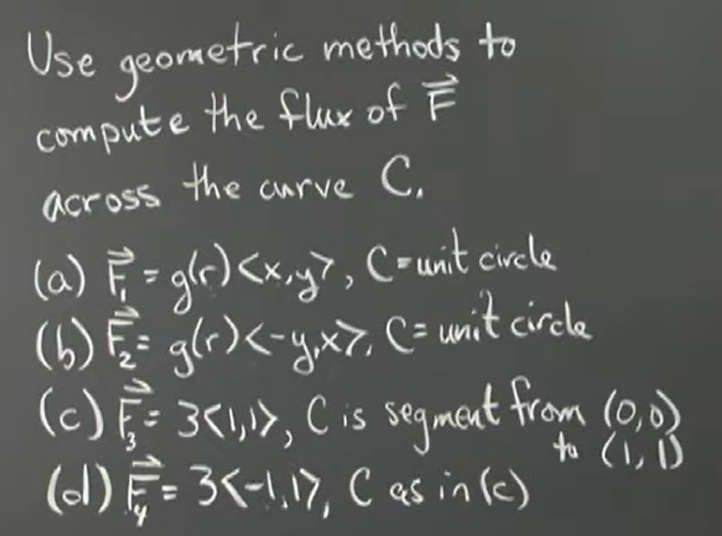 Use geometric methods to
compute the flux of F⃗
across the curve C.
(a) F⃗₁ = g(r)<x,y>, C=unit circle
(b) F⃗₂ = g(r)<-y,x>, C= unit circle
(c) F⃗₃ = 3<1,1>, C is segment from (0,0)
to (1,1)
(d) F⃗₄ = 3<-1,1>, C as in (c)